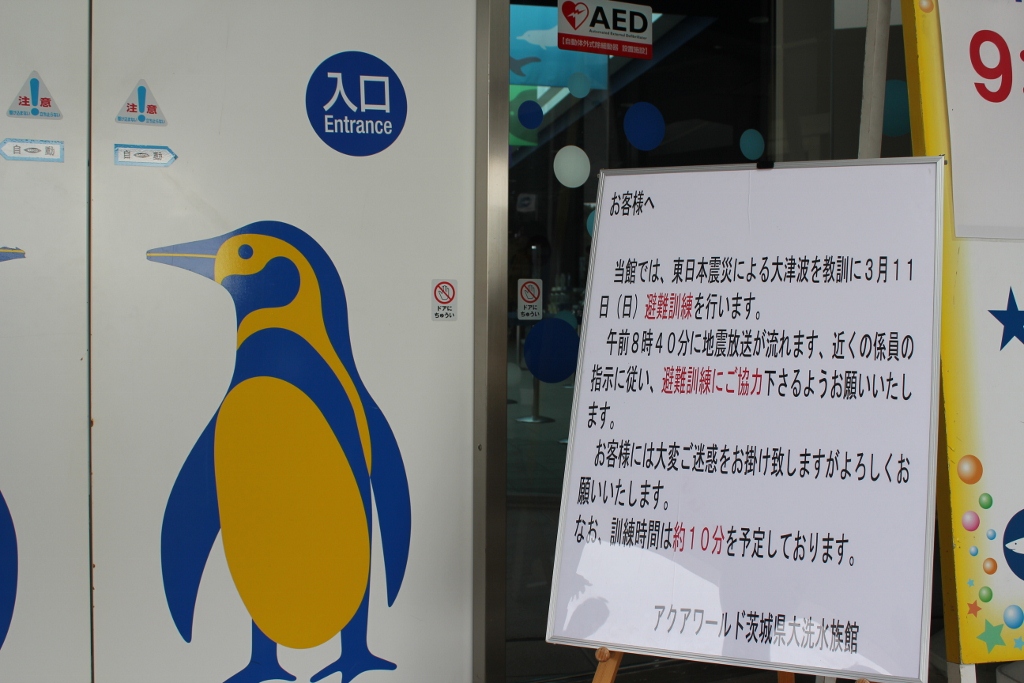 AED
【自動体外式除細動器 設置施設】
入口
Entrance
注！意
注！意
自動
自動
ドアに
ちゅうい
ドアに
ちゅうい
9:
お客様へ
当館では、東日本震災による大津波を教訓に３月１１
日（日）避難訓練を行います。
午前８時４０分に地震放送が流れます、近くの係員の
指示に従い、避難訓練にご協力下さるようお願いいたし
ます。
お客様には大変ご迷惑をお掛け致しますがよろしくお
願いいたします。
なお、訓練時間は約１０分を予定しております。
アクアワールド茨城県大洗水族館